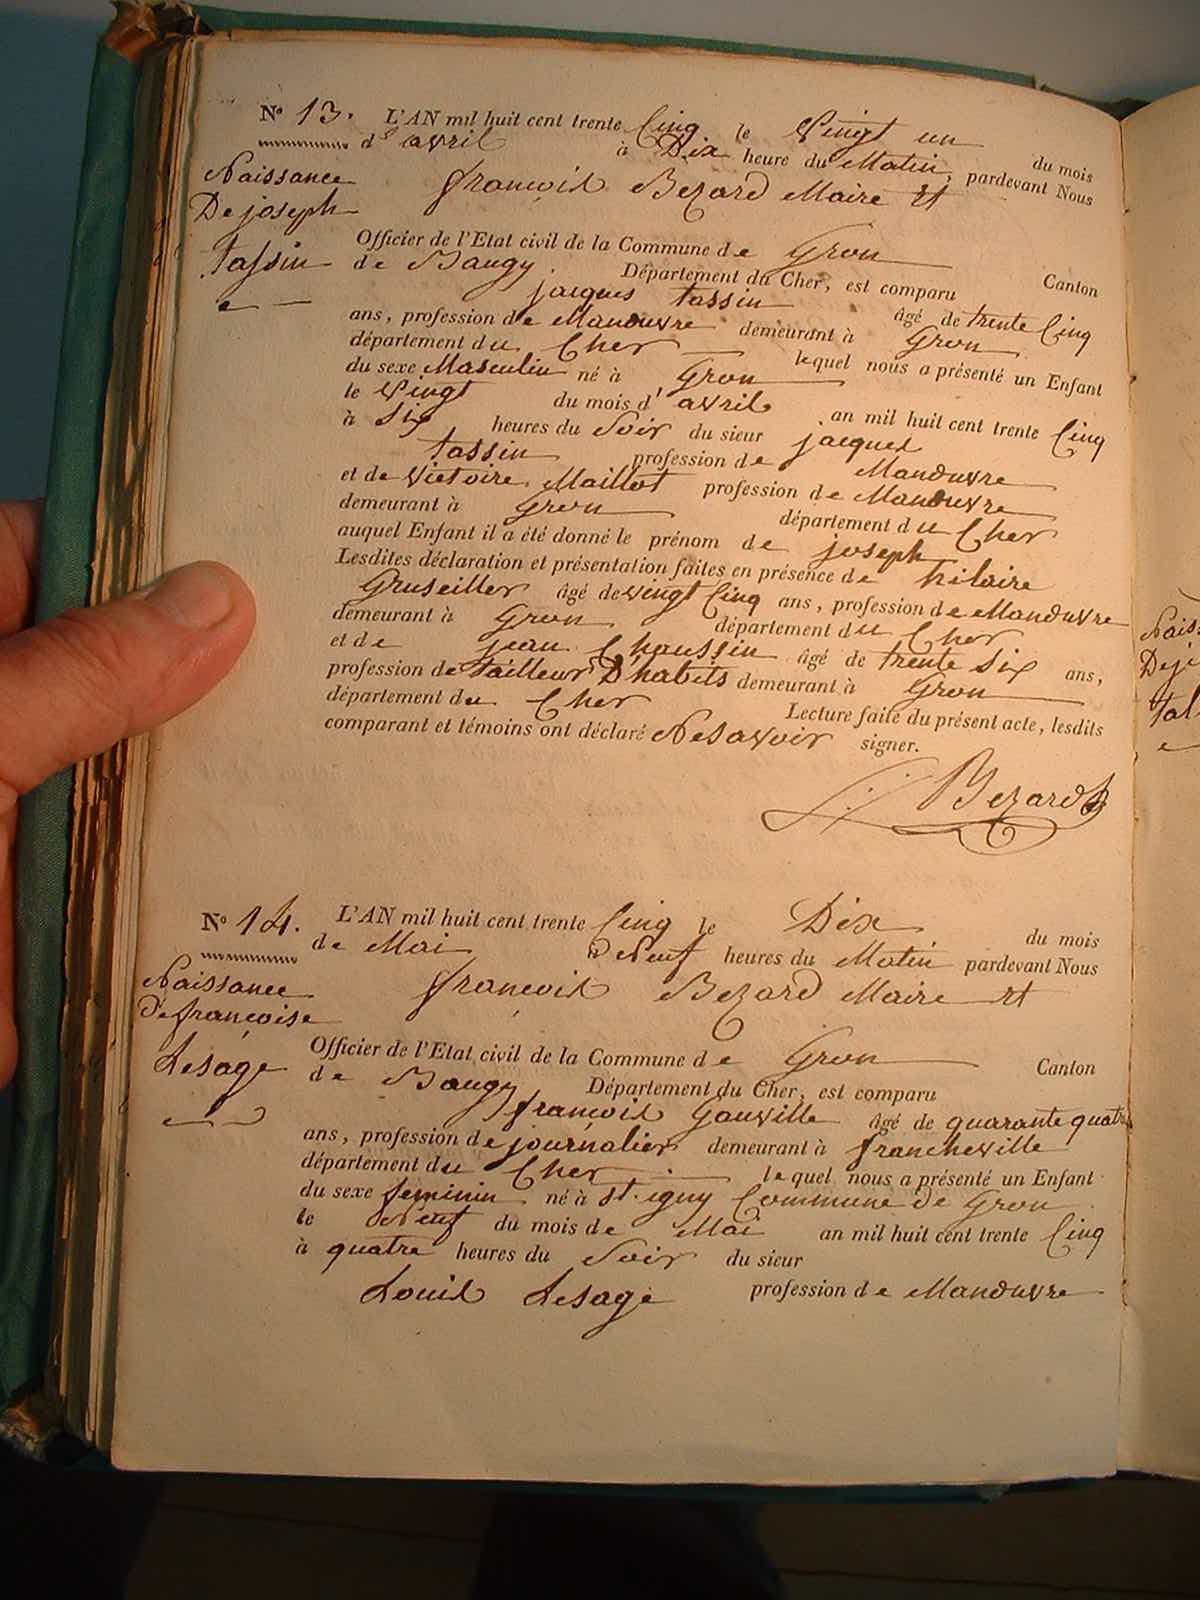 N° 13. L'AN mil huit cent trente Cinq le Vingt un du mois
d'avril à Dix heure du Matin, pardevant Nous
Naissance
françois Bezard Maire et
De joseph
Officier de l'Etat civil de la Commune de Gron Canton
tassin
de Baugy. Département du Cher, est comparu
jacques tassin âgé de trente Cinq
ans, profession de Manœuvre demeurant à Gron
département du Cher lequel nous a présenté un Enfant
du sexe Masculin né à Gron
le Vingt du mois d'avril an mil huit cent trente Cinq
à Six heures du Soir du sieur jacques
tassin profession de Manœuvre
et de Victoire Maillot profession de Manœuvre
demeurant à Gron département du Cher
auquel Enfant il a été donné le prénom de joseph
Lesdites déclaration et présentation faites en présence de hilaire
Gruseiller âgé de vingt Cinq ans, profession de Manœuvre
demeurant à Gron département du Cher
et de jean Chaussin âgé de trente Six ans,
profession de tailleur D'habits demeurant à Gron
département du Cher Lecture faite du présent acte, lesdits
comparant et témoins ont déclaré Nesavoir signer.
Bezard
N° 14. L'AN mil huit cent trente Cinq le Dix du mois
de Mai à Neuf heures du Matin pardevant Nous
Naissance
françois Bezard Maire et
De françoise
Officier de l'Etat civil de la Commune de Gron Canton
Lesage
de Baugy Département du Cher, est comparu
françois Gauville âgé de quarante quatre
ans, profession de journalier demeurant à francheville
département du Cher lequel nous a présenté un Enfant
du sexe feminin né à St. igny Commune de Gron
le Neuf du mois de Mai an mil huit cent trente Cinq
à quatre heures du Soir du sieur
Louis Lesage profession de Manœuvre
Nais
De je
tal